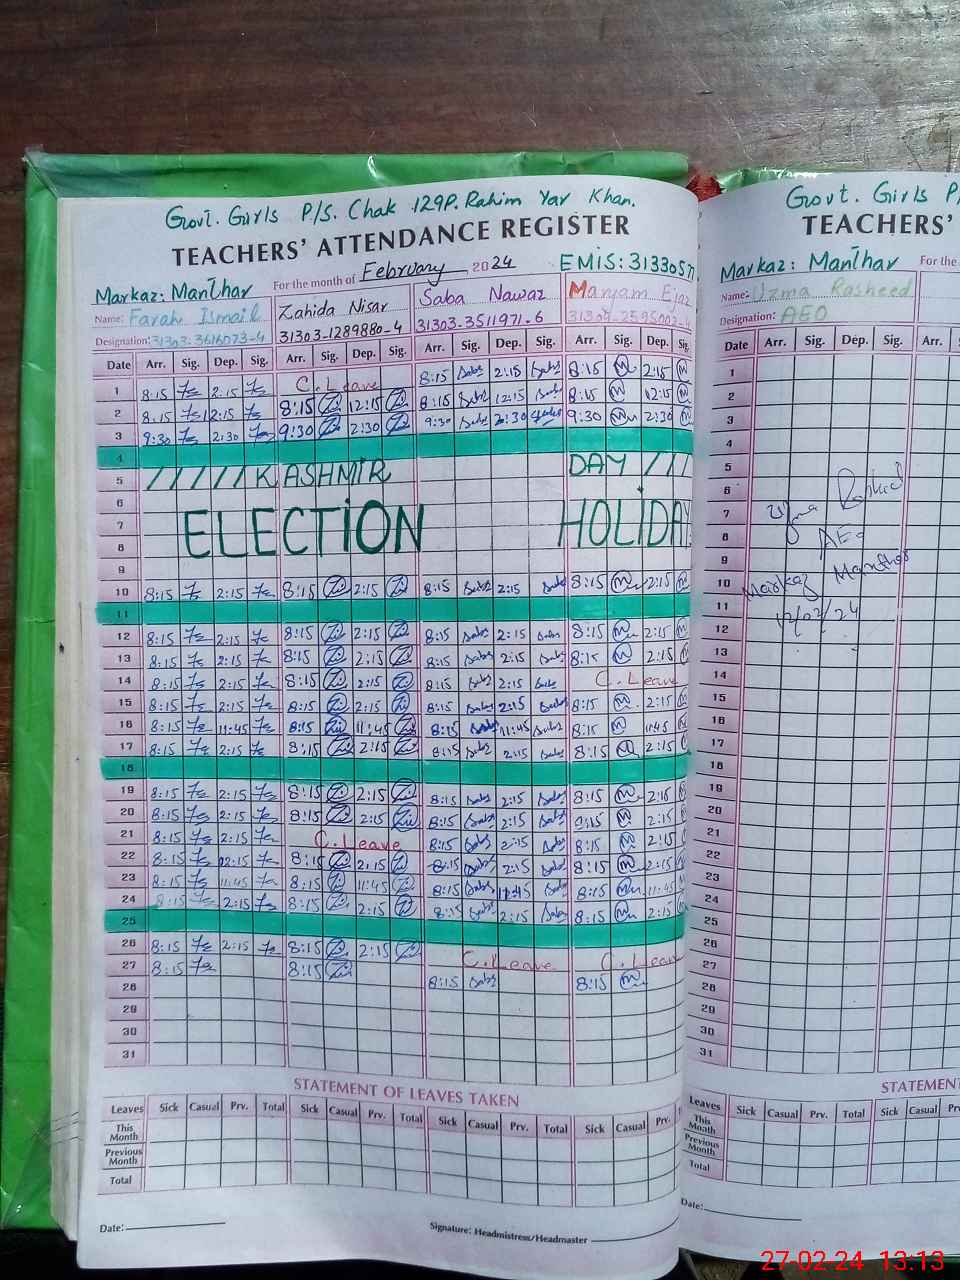 Govt. Girls P/S. Chak 129P. Rahim Yar Khan.
TEACHERS' ATTENDANCE REGISTER
For the month of February 2024
EMIS: 3133057
Markaz: Manthar
Name: Farah Ismail Zahida Nisar Saba Nawaz Maryam Ejaz
Designation: 31303-3616073-4 31303-1289880-4 31303-3511971-6
Date Arr. Sig. Dep. Sig. Arr. Sig. Dep. Sig. Arr. Sig. Dep. Sig. Arr. Sig. Dep. Sig.
1 8:15 2:15 C. Leave 8:15 Saba 2:15 Saba 8:15 M 2:15 M
2 8:15 12:15 8:15 12:15 8:15 Saba 12:15 Saba 8:15 M 12:15 M
3 9:30 2:30 9:30 2:30 9:30 Saba 2:30 Saba 9:30 M 2:30 M
4
5 / / / / / KASHMIR DAY / / /
6
7 ELECTION HOLIDAY
8
9
10 8:15 2:15 8:15 2:15 8:15 Saba 2:15 Saba 8:15 M 2:15 M
11
12 8:15 2:15 8:15 2:15 8:15 Saba 2:15 Saba 8:15 M 2:15 M
13 8:15 2:15 8:15 2:15 8:15 Saba 2:15 Saba 8:15 M 2:15
14 8:15 2:15 8:15 2:15 8:15 Saba 2:15 Saba C. Leave
15 8:15 2:15 8:15 2:15 8:15 Saba 2:15 Saba 8:15 M 2:15
16 8:15 11:45 8:15 11:45 8:15 Saba 11:45 Saba 8:15 M 11:45
17 8:15 2:15 8:15 2:15 8:15 Saba 2:15 Saba 8:15 M 2:15
18
19 8:15 2:15 8:15 2:15 8:15 Saba 2:15 Saba 8:15 M 2:15
20 8:15 2:15 8:15 2:15 8:15 Saba 2:15 Saba 8:15 M 2:15
21 8:15 2:15 C. Leave 8:15 Saba 2:15 Saba 8:15 M 2:15
22 8:15 02:15 8:15 2:15 8:15 Saba 2:15 Saba 8:15 M 2:15
23 8:15 11:45 8:15 11:45 8:15 Saba 11:45 Saba 8:15 M 11:45
24 8:15 2:15 8:15 2:15 8:15 Saba 2:15 Saba 8:15 M 2:15
25
26 8:15 2:15 8:15 2:15 C. Leave C. Leave
27 8:15 8:15 8:15 Saba 8:15 M
28
29
30
31
STATEMENT OF LEAVES TAKEN
Leaves Sick Casual Prv. Total Sick Casual Prv. Total Sick Casual Prv. Total Sick Casual Prv.
This Month
Previous Month
Total
Date:
Signature: Headmistress/Headmaster
Govt. Girls P/
TEACHERS'
Markaz: Manthar For the
Name: Uzma Rasheed
Designation: AEO
Date Arr. Sig. Dep. Sig. Arr.
1
2
3
4
5
6
7
8
9
10
11
12
13
14
15
16
17
18
19
20
21
22
23
24
25
26
27
28
29
30
31
Uzma Rasheed
AEO
Markaz Manthar
12/02/24
STATEMENT
Leaves Sick Casual Prv. Total Sick Casual
This Month
Previous Month
Total
Date:
27-02-24 13:13